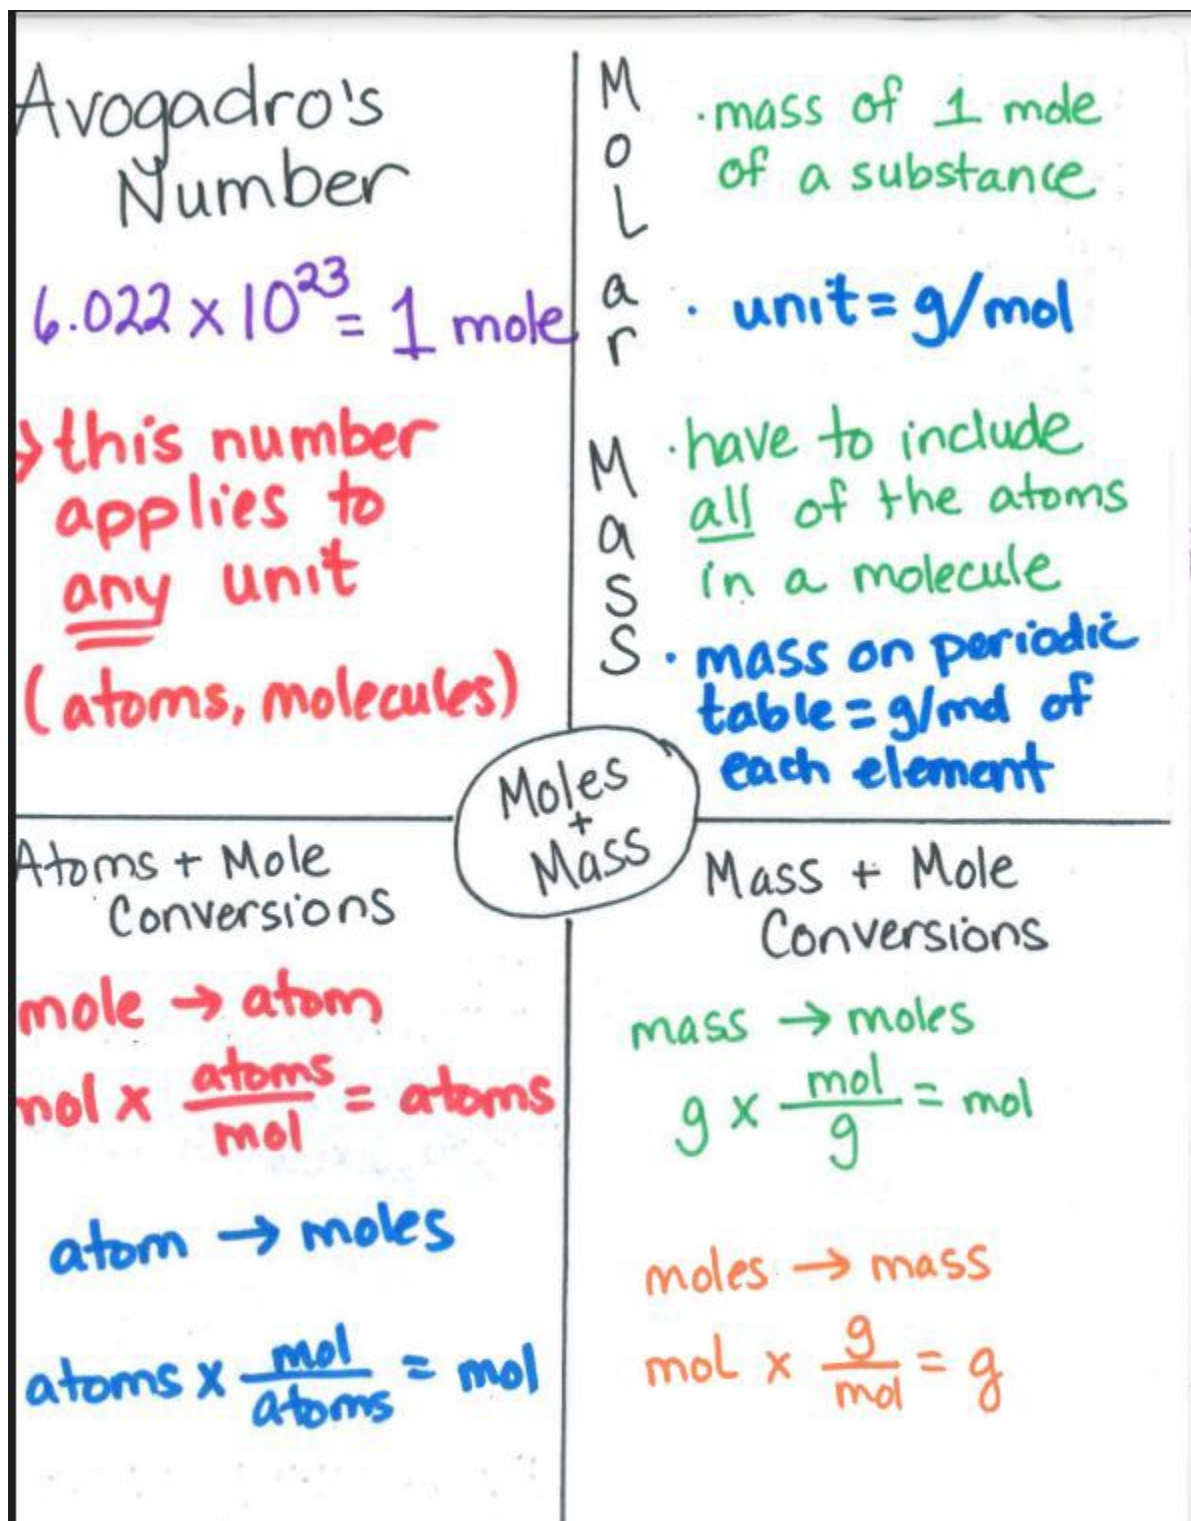 Avogadro's
Number
6.022 x 10²³ = 1 mole
→ this number
applies to
any unit
(atoms, molecules)
Molar Mass
· mass of 1 mole
of a substance
· unit = g/mol
· have to include
all of the atoms
in a molecule
· mass on periodic
table = g/mol of
each element
Moles
+
Mass
Atoms + Mole
Conversions
mole → atom
mol x atoms/mol = atoms
atom → moles
atoms x mol/atoms = mol
Mass + Mole
Conversions
mass → moles
g x mol/g = mol
moles → mass
mol x g/mol = g